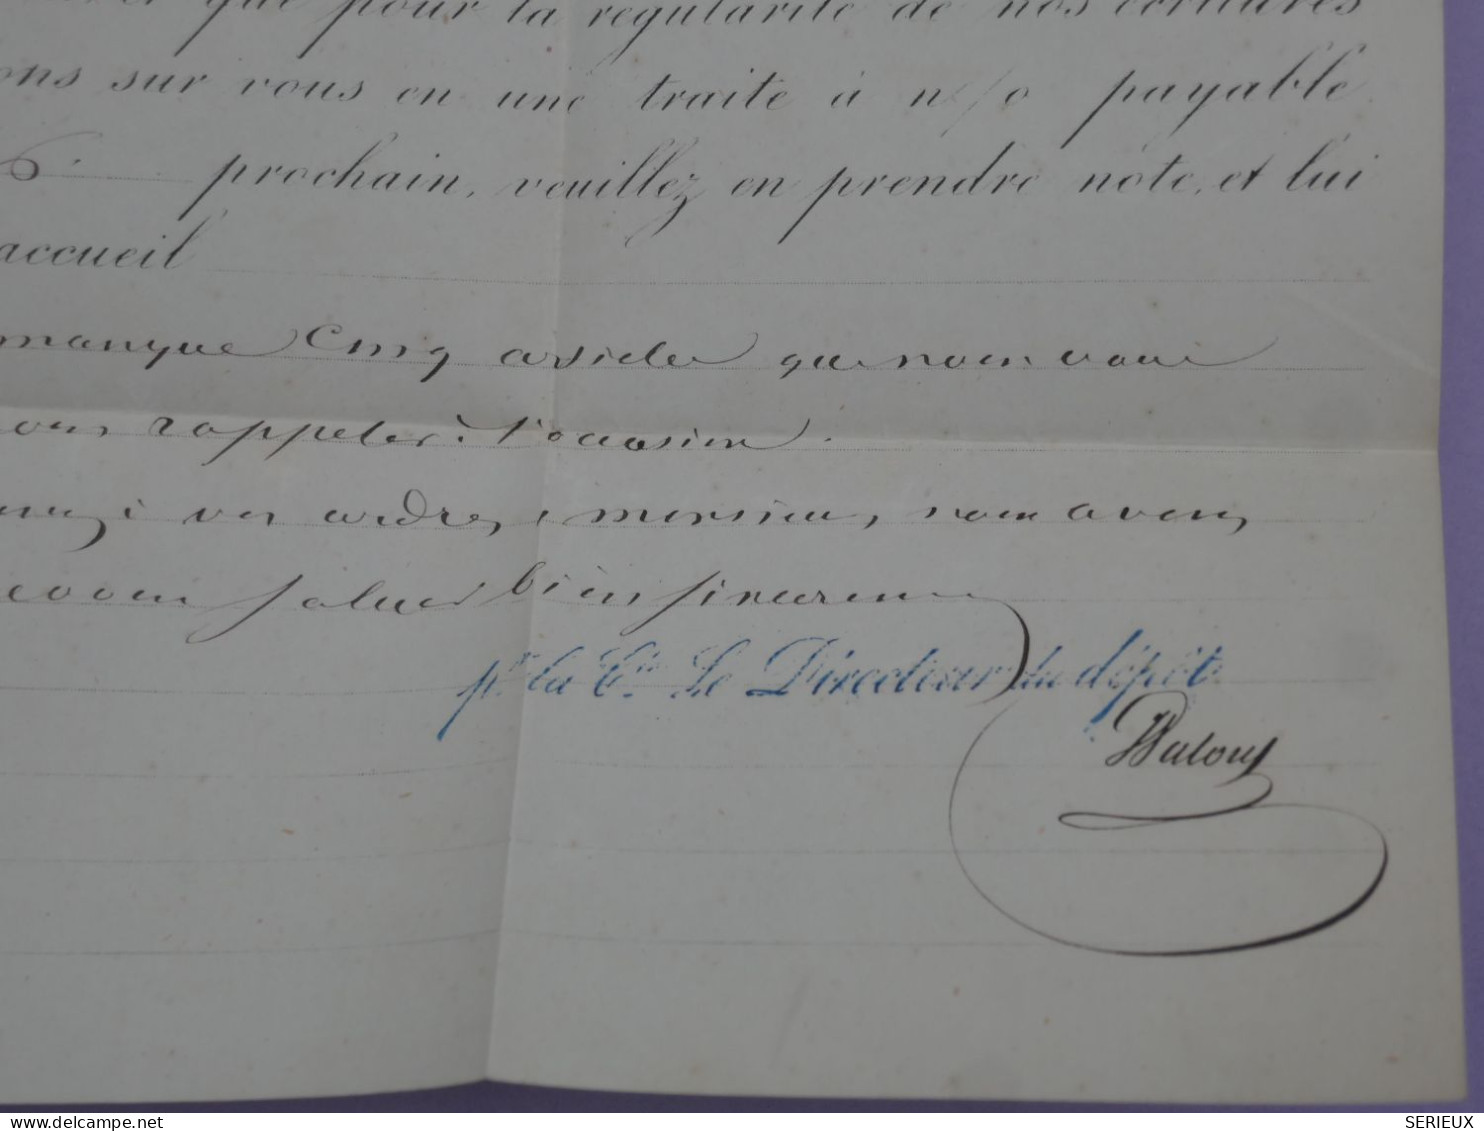 que pour la régularité de nos écritures
ons sur vous en une traite à n/o payable
prochain, veuillez en prendre note, et lui
accueil
manque cinq articles que nous vous
rappeler à l'occasion.
vos ordres, monsieur, nous avons
saluer bien sincèrement
pr. la Cie. Le Directeur du dépôt
delcampe.net
SERIEUX